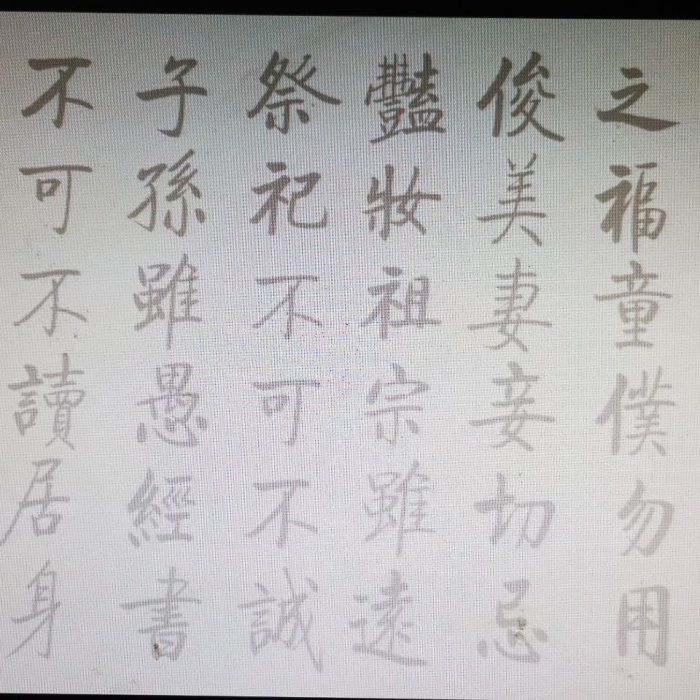 之福童僕勿用
俊美妻妾切忌
豔妝祖宗雖遠
祭祀不可不誠
子孫雖愚經書
不可不讀居身